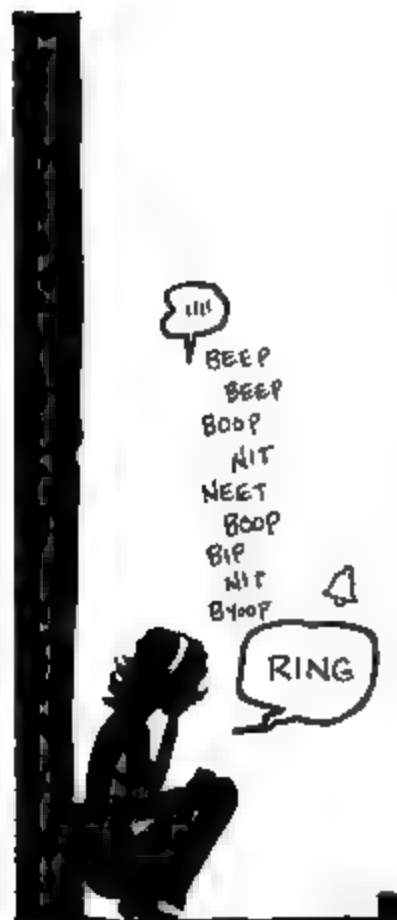 BEEP
BEEP
BOOP
NIT
NEET
BOOP
BIP
NIT
BYOOP
RING